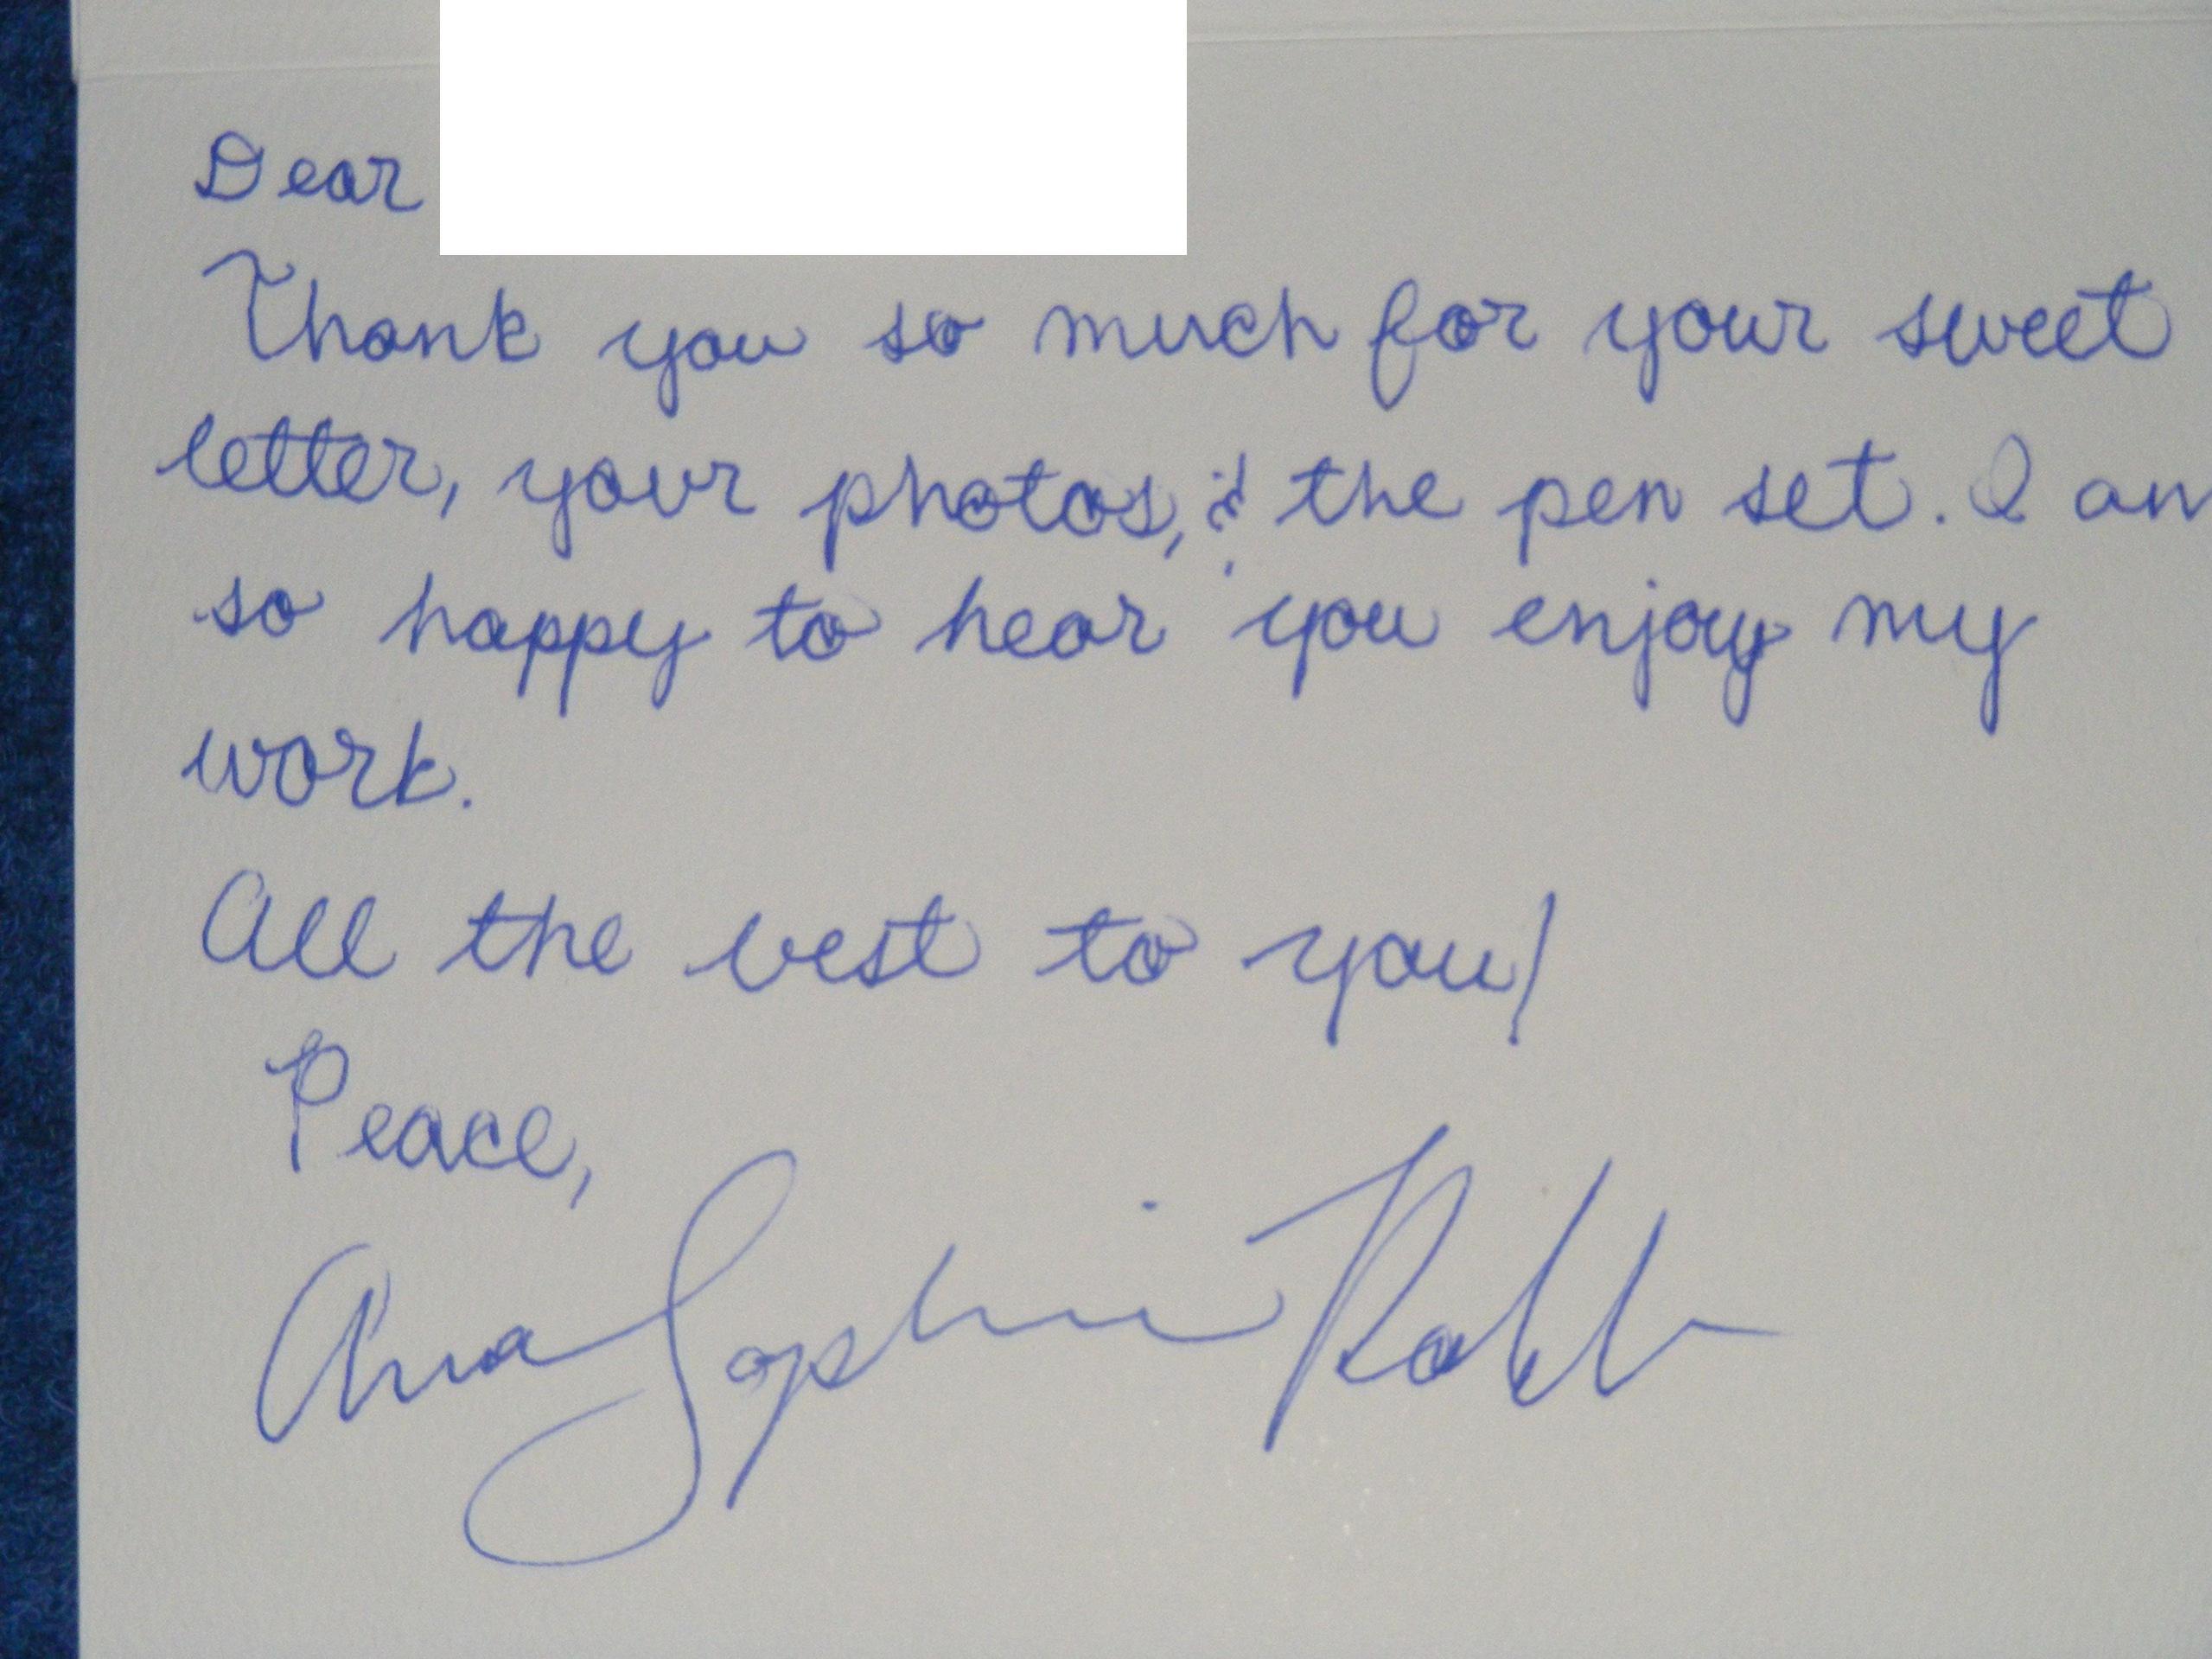 Dear
Thank you so much for your sweet
letter, your photos, & the pen set. I am
so happy to hear you enjoy my
work.
All the best to you!
Peace,
AnnaSophia Robb